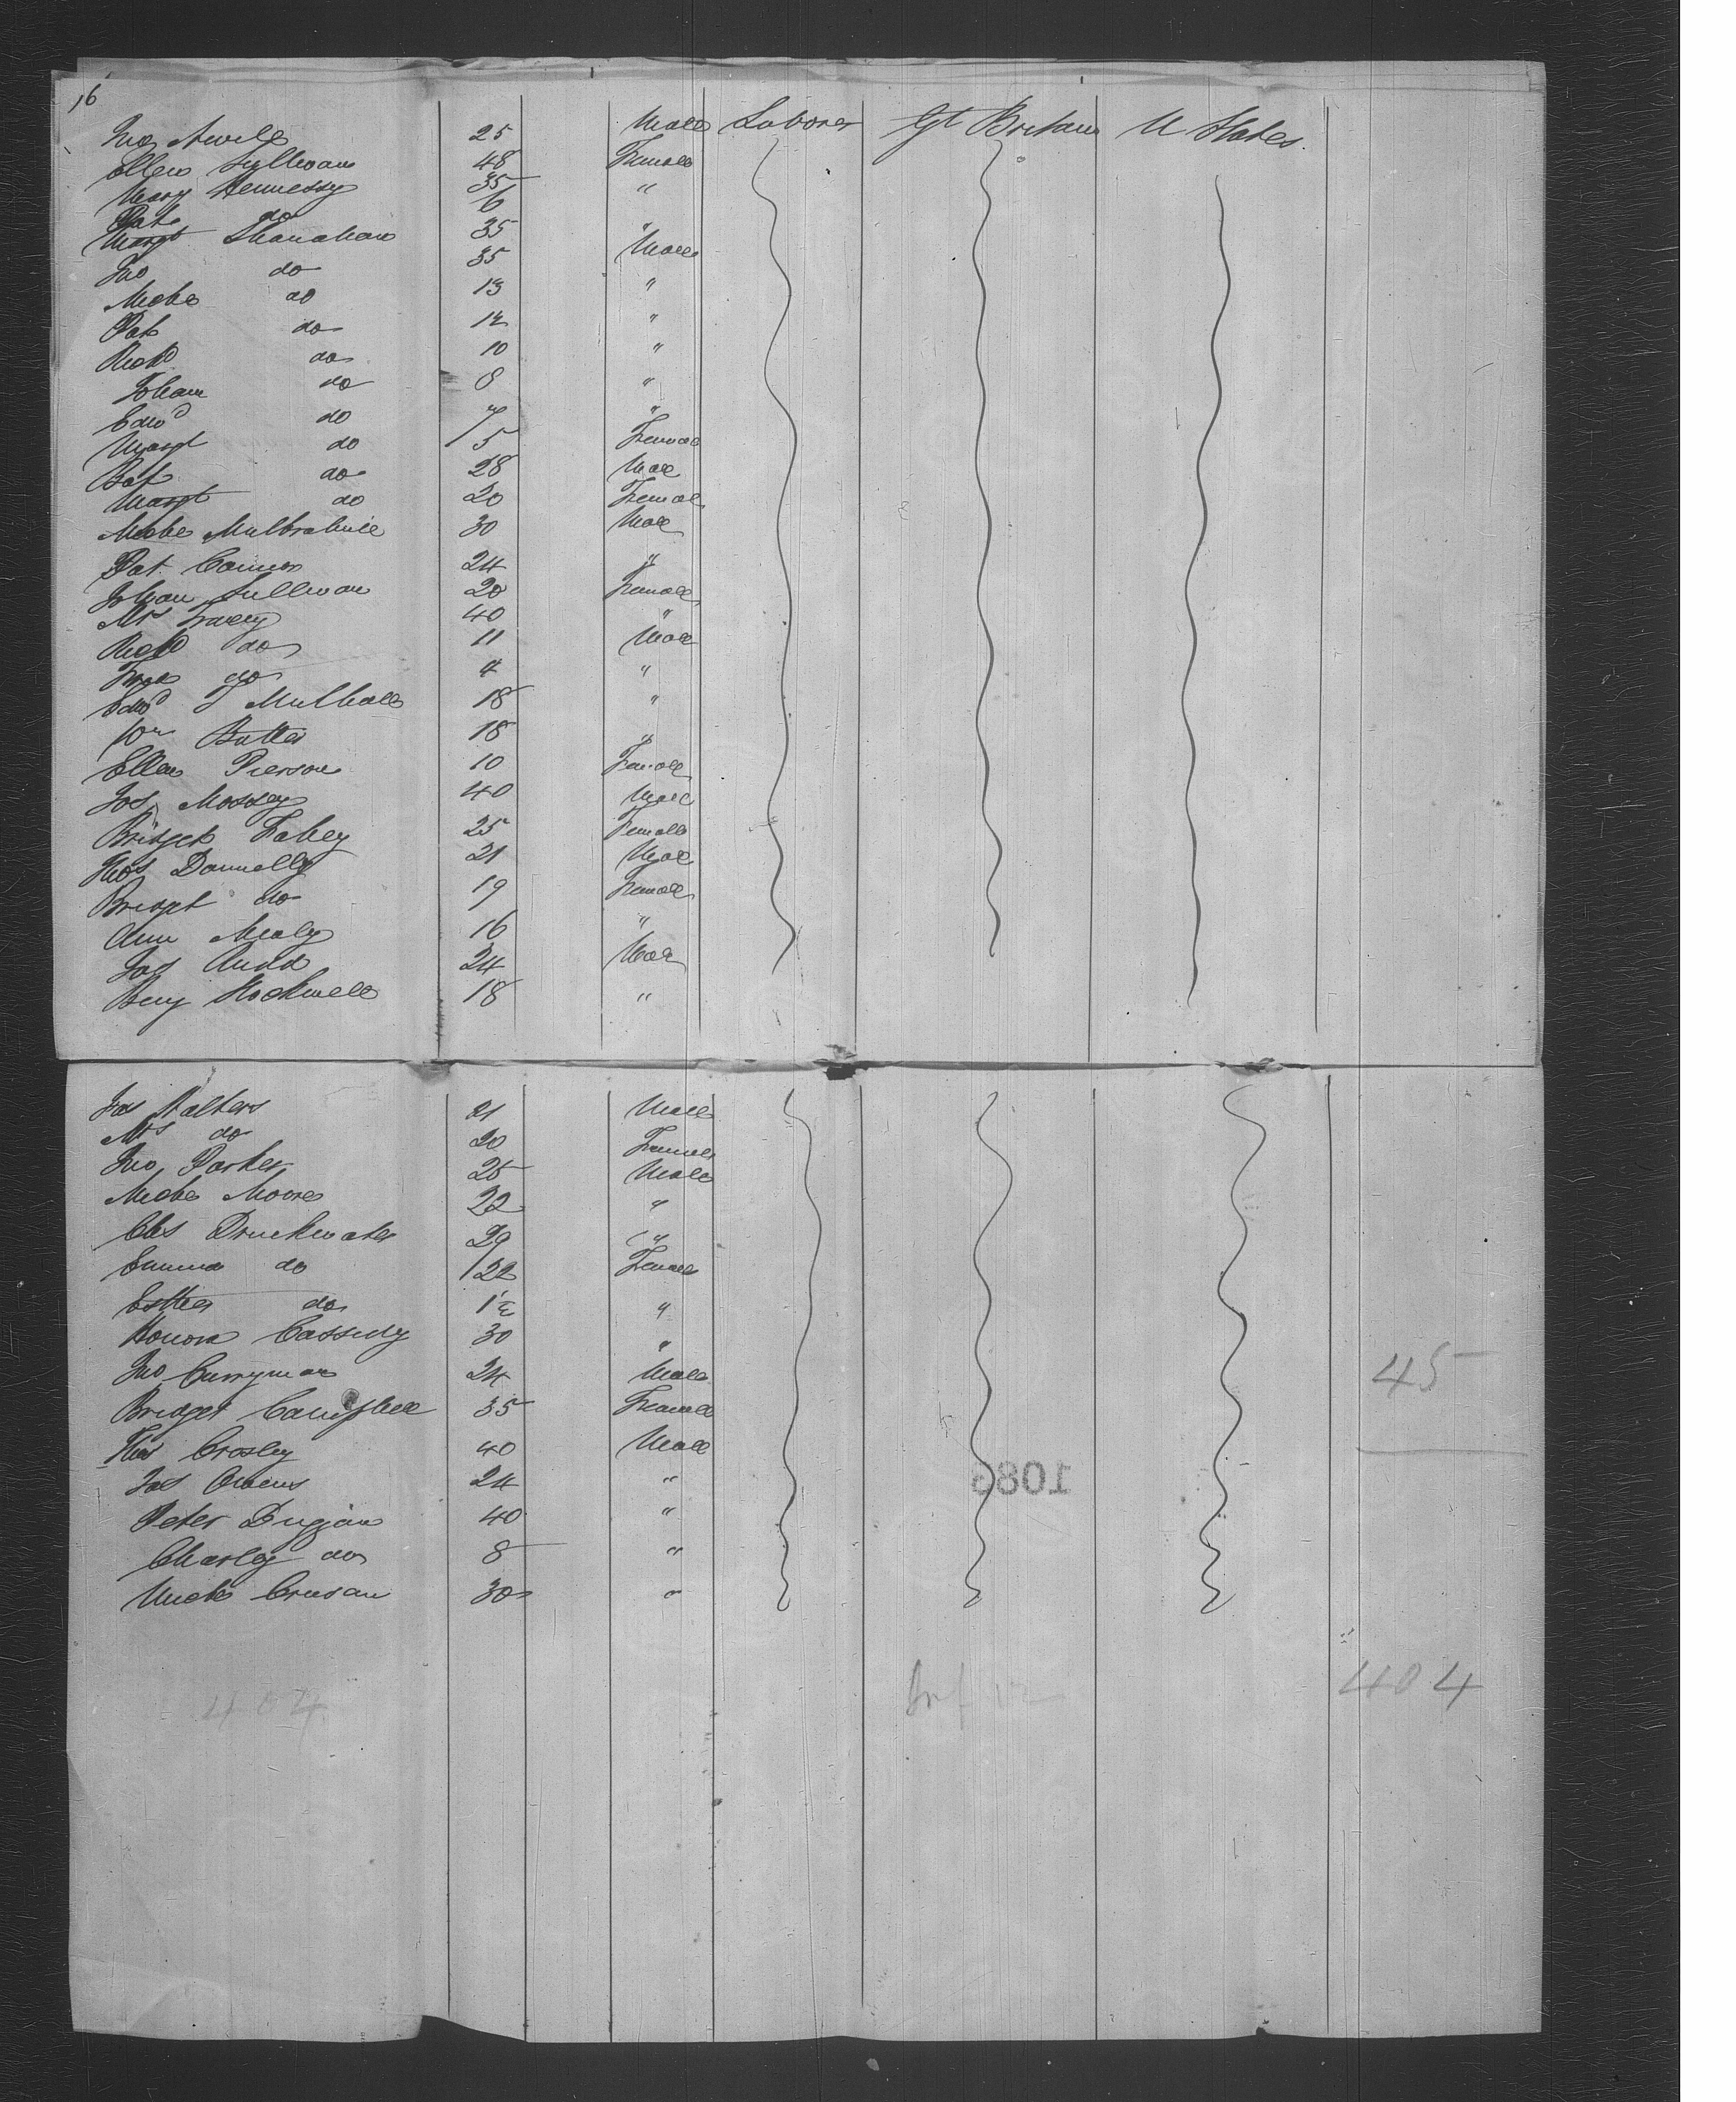 16
Jno 25 Male Laborer Gt Britain U States.
Ellen Sullivan 48 Female
Mary Hennessy 35 "
Pat do 6 "
Margt Shanahan 35
Jno do 35 Male
Michl do 13 "
Pat do 12 "
Richd do 10 "
Johan do 8 "
Edwd do 7 "
Margt do 5 Female
Pat do 28 Male
Margt do 20 Female
Michl 30 Male
Pat Connor 24 "
Johan Sullivan 20 Female
Mrs 40 "
Richd do 11 Male
do 4 "
Edwd Mulhall 18 "
Wm Butler 18 "
Ellen Pierson 10 Female
Jos Mossey 40 Male
Bridget Fahey 25 Female
Thos Donnelly 21 Male
Bridget do 19 Female
Ann Mealy 16 "
Jas 24 Male
Benj Stockwell 18 "
Jas Walters 21 Male
Mrs do 20 Female
Jno Parker 25 Male
Michl Moore 22 "
Chs Drinkwater 29 "
Emma do 22 Female
Esther do 1½ "
Honora Cassidy 30 "
Jno 24 Male
Bridget Campbell 35 Female
45
Thos Crosley 40 Male
Jas Owens 24 "
1086
Peter Dugan 40 "
Charley do 8 "
Michl 30 "
404
404